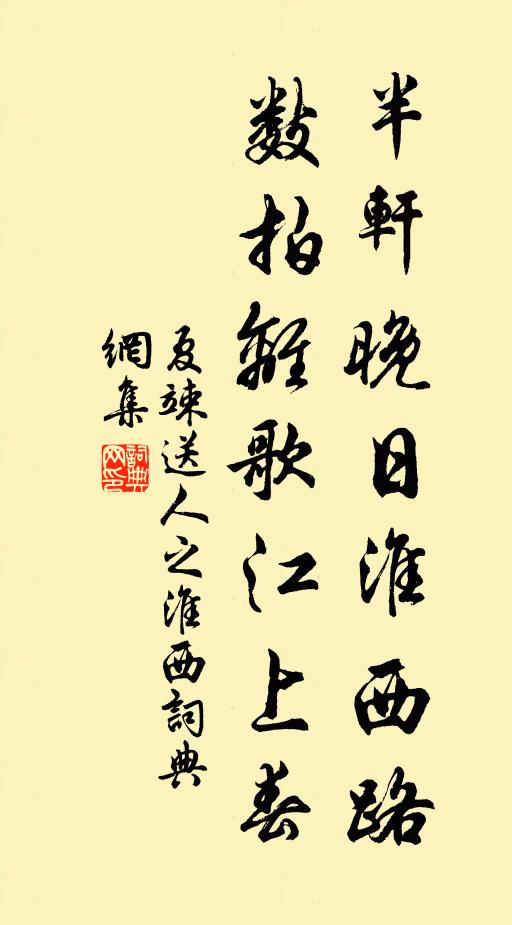 半軒晚日淮西路
數拍離歌江上春
夏竦送人之淮西詞典
網集
詞典
网印